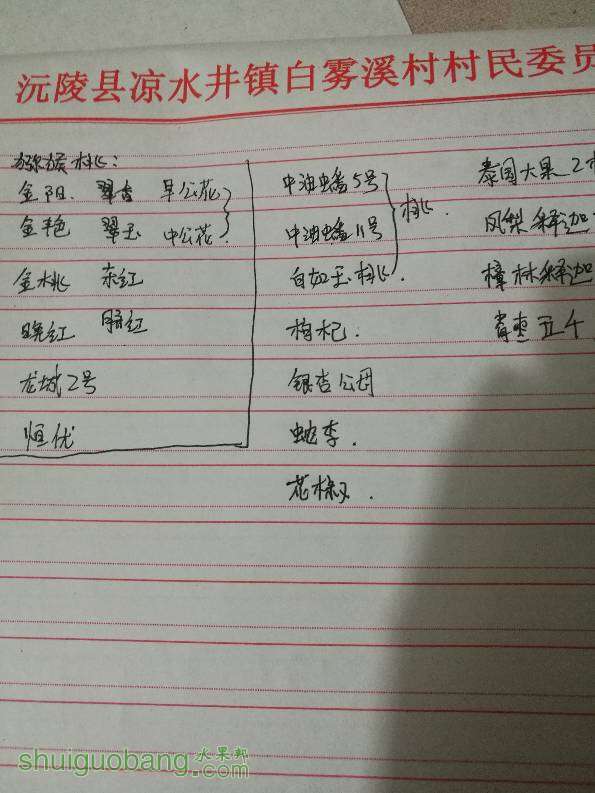 沅陵县凉水井镇白雾溪村村民委员
猕猴桃：
金阳. 翠香 早公花
金艳 翠玉 中公花.
金桃 东红
晚红 脐红
龙城2号
恒优
中油蟠5号
中油蟠11号
白如玉桃
桃.
枸杞.
银杏公母
蜂李.
花椒.
泰国大果2
凤梨释迦
樟林释迦
青枣五个
水果邦
shuiguobang.com